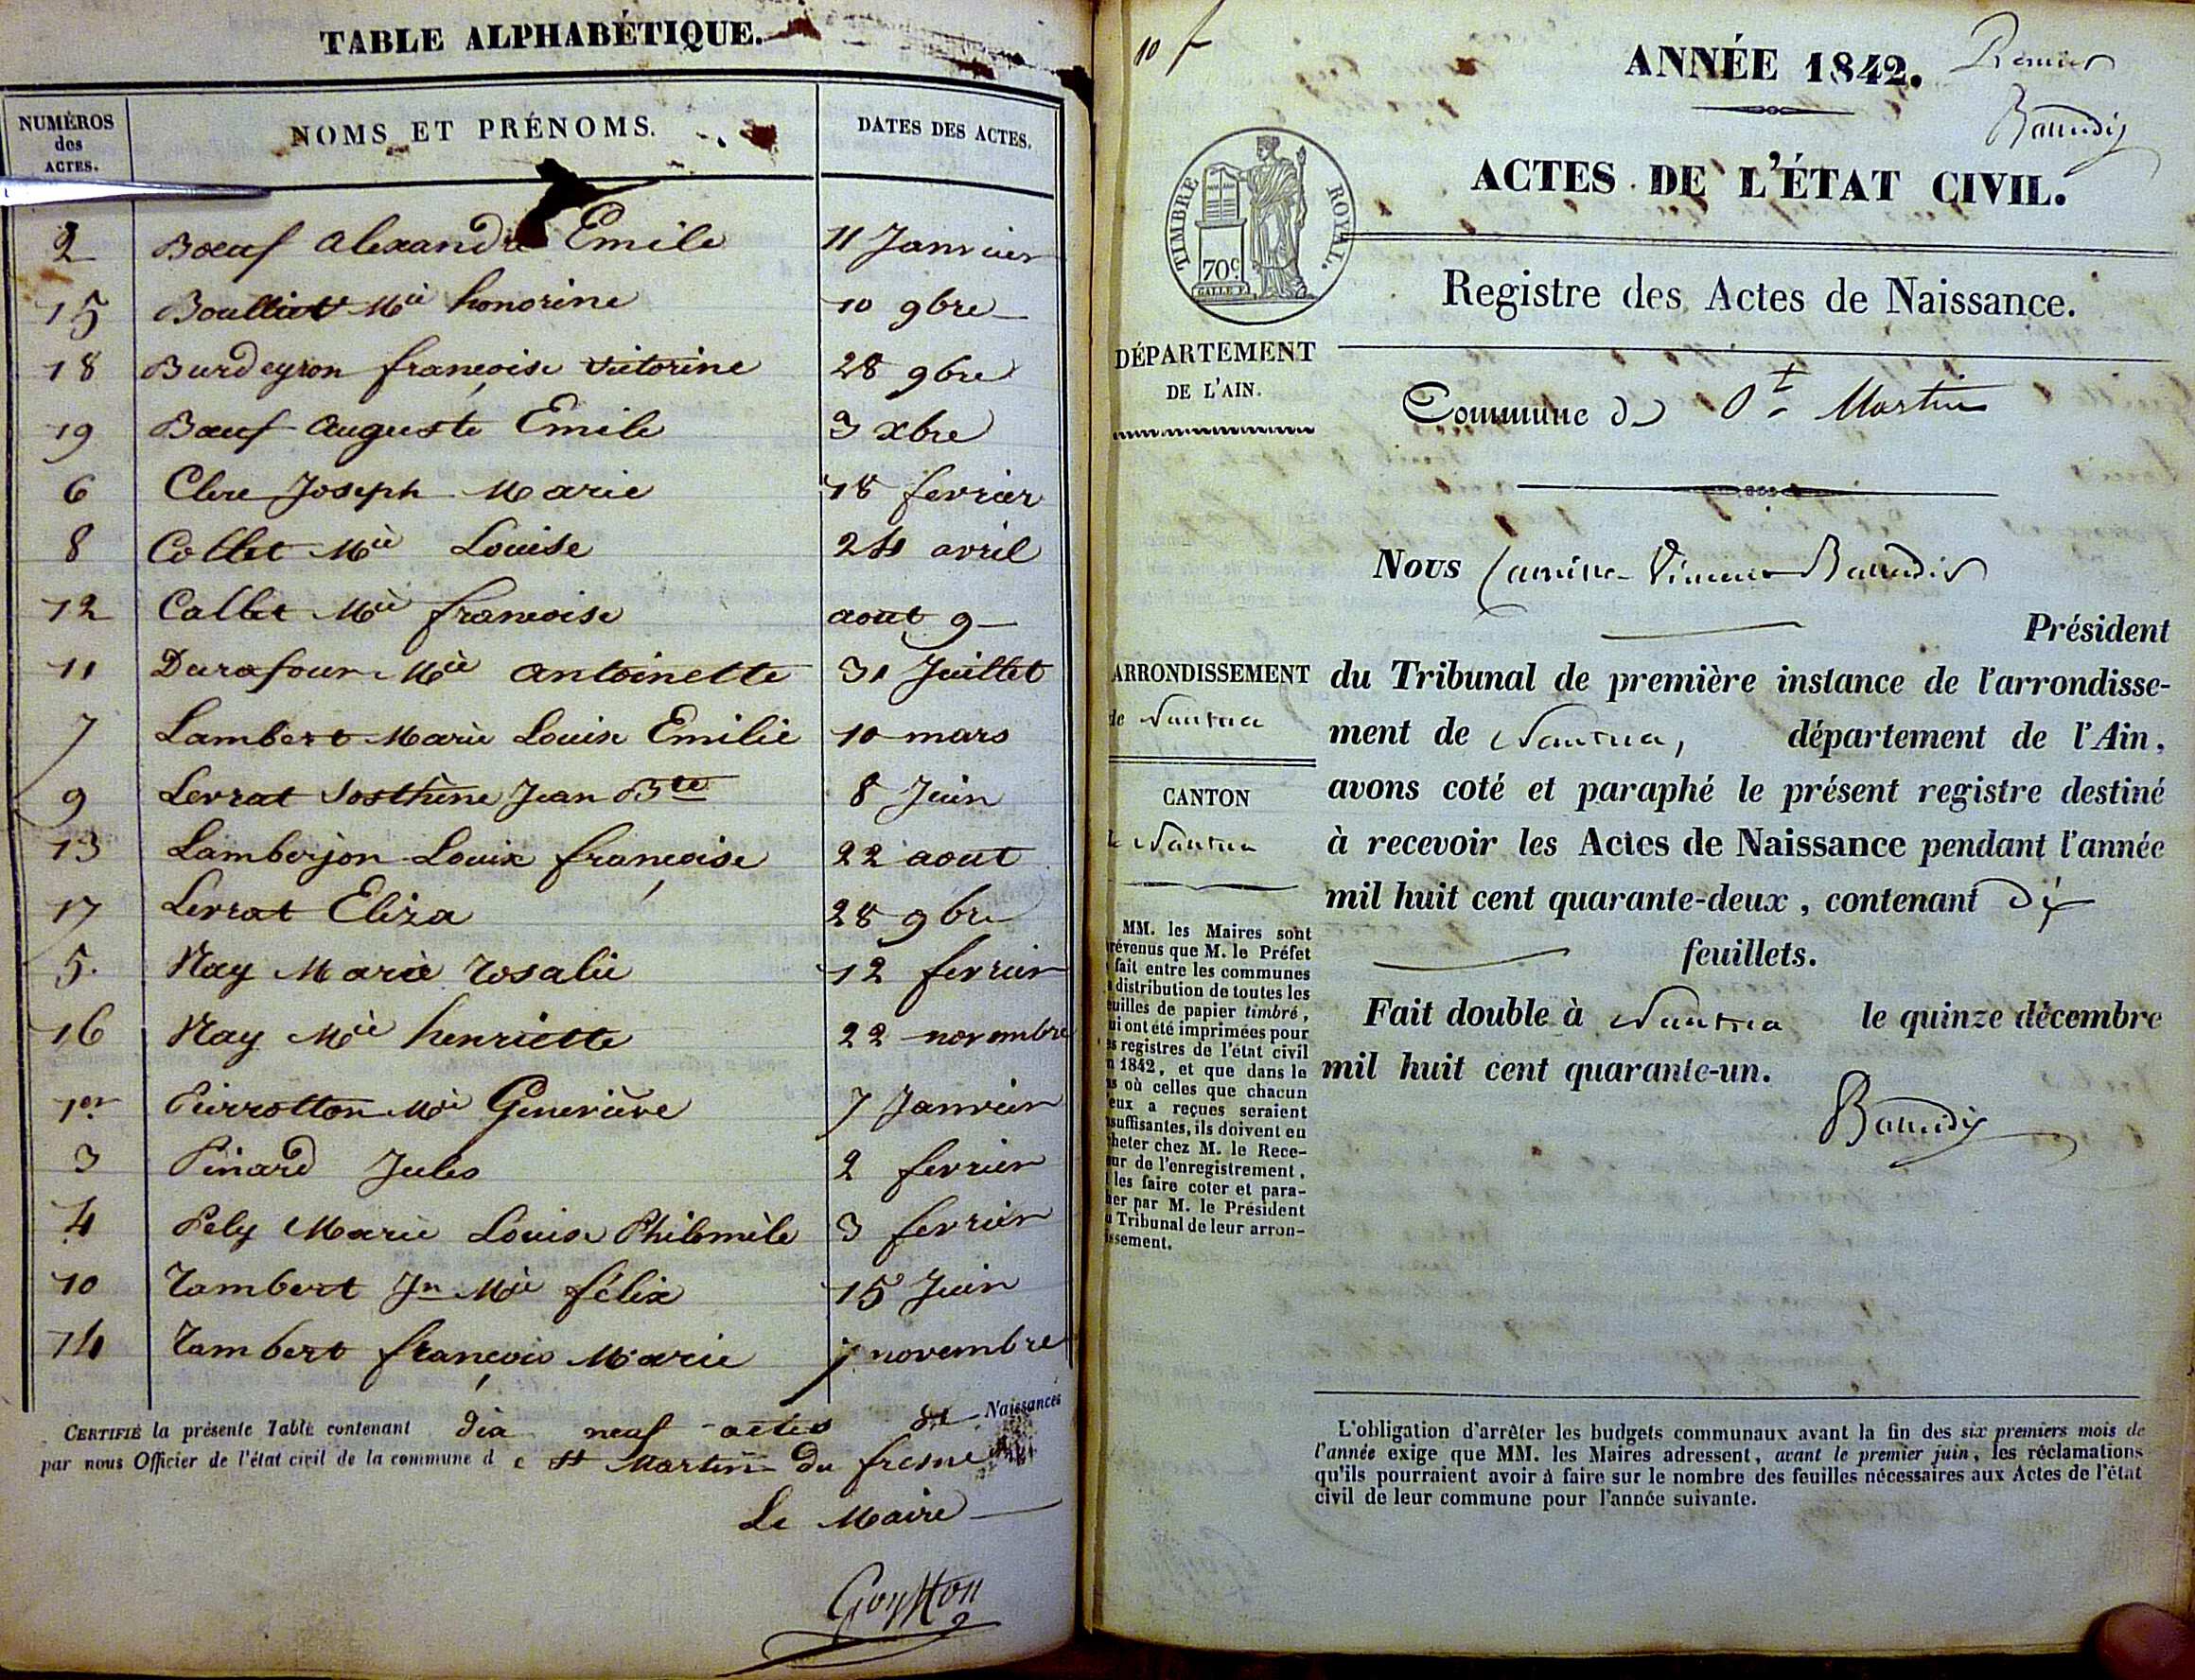 TABLE ALPHABÉTIQUE.
NUMÉROS
des
ACTES.
NOMS ET PRÉNOMS.
DATES DES ACTES.
2 Bœuf Alexandre Emile 11 Janvier
15 Boulliat Mie honorine 10 9bre
18 Burdeyron françoise victorine 28 9bre
19 Bœuf Auguste Emile 3 xbre
6 Clere Joseph Marie 18 fevrier
8 Collet Mie Louise 24 avril
12 Collet Mie françoise aout 9
11 Durafour Mie antoinette 31 Juillet
7 Lambert Marie Louise Emilie 10 mars
9 Levrat Sosthène Jean Bte 8 Juin
13 Lamberjon Louise françoise 22 aout
17 Levrat Eliza 28 9bre
5. Nay Marie rosalie 12 fevrier
16 Nay Mie henriette 22 novembre
1er Pierrotton Mie Geneviève 7 Janvier
3 Pinard Jules 2 fevrier
4 Pely Marie Louise Philomèle 3 fevrier
10 Tambert Jn Mie félix 15 Juin
14 Tambert françois Marie 7 novembre
CERTIFIÉ la présente Table contenant dix neuf actes de Naissances
par nous Officier de l'état civil de la commune d e St Martin du fresne
Le Maire
10 f
ANNÉE 1842.
Premier
Baudin
ACTES DE L'ÉTAT CIVIL.
TIMBRE ROYAL.
70c
Registre des Actes de Naissance.
DÉPARTEMENT
DE L'AIN.
Commune de St Martin
Nous
Président
ARRONDISSEMENT
de Nantua
CANTON
de Nantua
du Tribunal de première instance de l'arrondisse-
ment de Nantua, département de l'Ain,
avons coté et paraphé le présent registre destiné
à recevoir les Actes de Naissance pendant l'année
mil huit cent quarante-deux, contenant dix
feuillets.
Fait double à Nantua le quinze décembre
mil huit cent quarante-un.
MM. les Maires sont
révenus que M. le Préfet
fait entre les communes
distribution de toutes les
uilles de papier timbré,
ui ont été imprimées pour
es registres de l'état civil
n 1842, et que dans le
as où celles que chacun
'eux a reçues seraient
nsuffisantes, ils doivent en
cheter chez M. le Rece-
eur de l'enregistrement,
les faire coter et para-
her par M. le Président
u Tribunal de leur arron-
issement.
L'obligation d'arrêter les budgets communaux avant la fin des six premiers mois de
l'année exige que MM. les Maires adressent, avant le premier juin, les réclamations
qu'ils pourraient avoir à faire sur le nombre des feuilles nécessaires aux Actes de l'état
civil de leur commune pour l'année suivante.